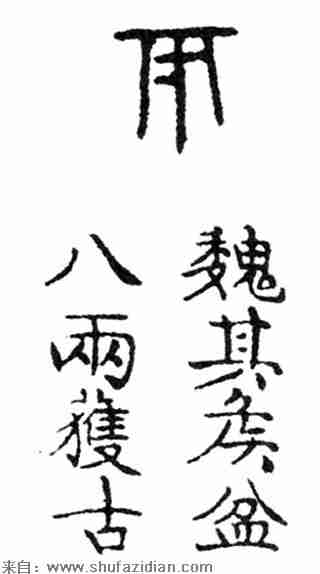 魏其矦盆
八兩獲古
来自：www.shufazidian.com